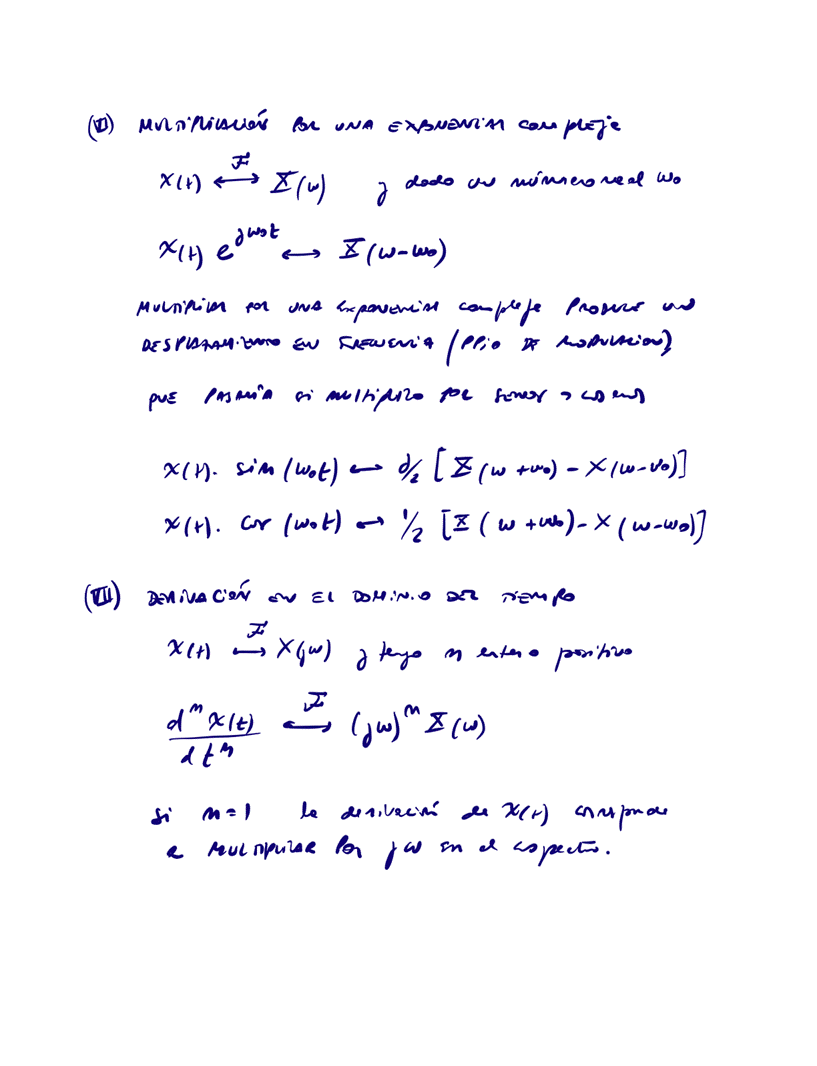 (VI) MULTIPLICACIÓN POR UNA EXPONENCIAL compleja
x(t) ⟷ℱ X(ω) y dado un número real ω₀
x(t) e^{jω₀t} ⟷ X(ω-ω₀)
MULTIPLICAR POR UNA exponencial compleja PRODUCE UN
DESPLAZAMIENTO EN FRECUENCIA (PPIO DE MODULACION)
QUE PASARÍA si multiplico POR senos o cosenos
x(t). sin (ω₀t) ⟷ j/2 [X(ω +ω₀) - X(ω-ω₀)]
x(t). cos (ω₀t) ⟷ 1/2 [X( ω +ω₀)- X(ω-ω₀)]
(VII) DERIVACIÓN EN EL DOMINIO DEL TIEMPO
x(t) ⟷ℱ X(jω) y tengo n entero positivo
dⁿx(t)/dtⁿ ⟷ℱ (jω)ⁿ X(ω)
si n=1 la derivación de x(t) corresponde
a MULTIPLICAR Por jω en el espectro.